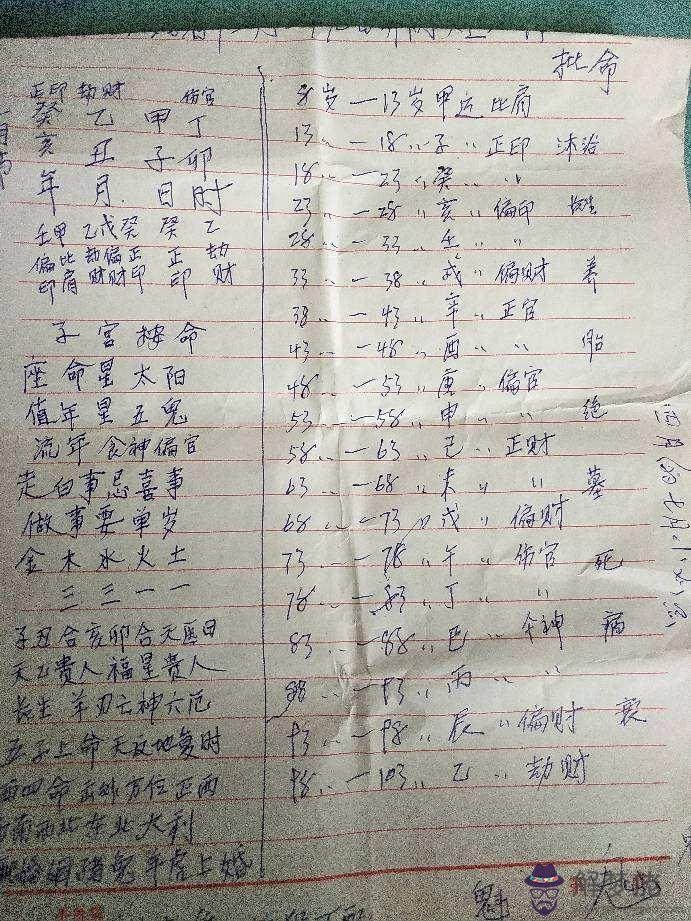 批命
正印 劫财 伤官
癸 乙 甲 丁
亥 丑 子 卯
年 月 日 时
壬甲 乙戊癸 癸 乙
偏比 劫偏正 正 劫
印肩 财财印 印 财
子宫按命
座命星太阳
值年星五鬼
流年食神偏官
走白事忌喜事
做事要单岁
金木水火土
三三一一
子丑合亥卯合天
天乙貴人福星貴人
长生羊刃亡神六厄
五子上命天
西四命 方位正西
西北东北大利
上婚
8岁一13岁甲运比肩
13〃一18〃子〃正印 沐浴
18〃一23〃癸〃〃
23〃一28〃亥〃偏印 长生
28〃一33〃壬〃〃
33〃一38〃戌〃偏财 养
38〃一43〃辛〃正官
43〃一48〃酉〃〃 胎
48〃一53〃庚〃偏官
53〃一58〃申〃〃 绝
58〃一63〃己〃正财
63〃一68〃未〃〃 墓
68〃一73〃戊〃偏财
73〃一78〃午〃伤官 死
78〃一83〃丁〃〃
83〃一88〃巳〃食神 病
88〃一93〃丙〃〃
93〃一98〃辰〃偏财 衰
98〃一103〃乙〃劫财
魁